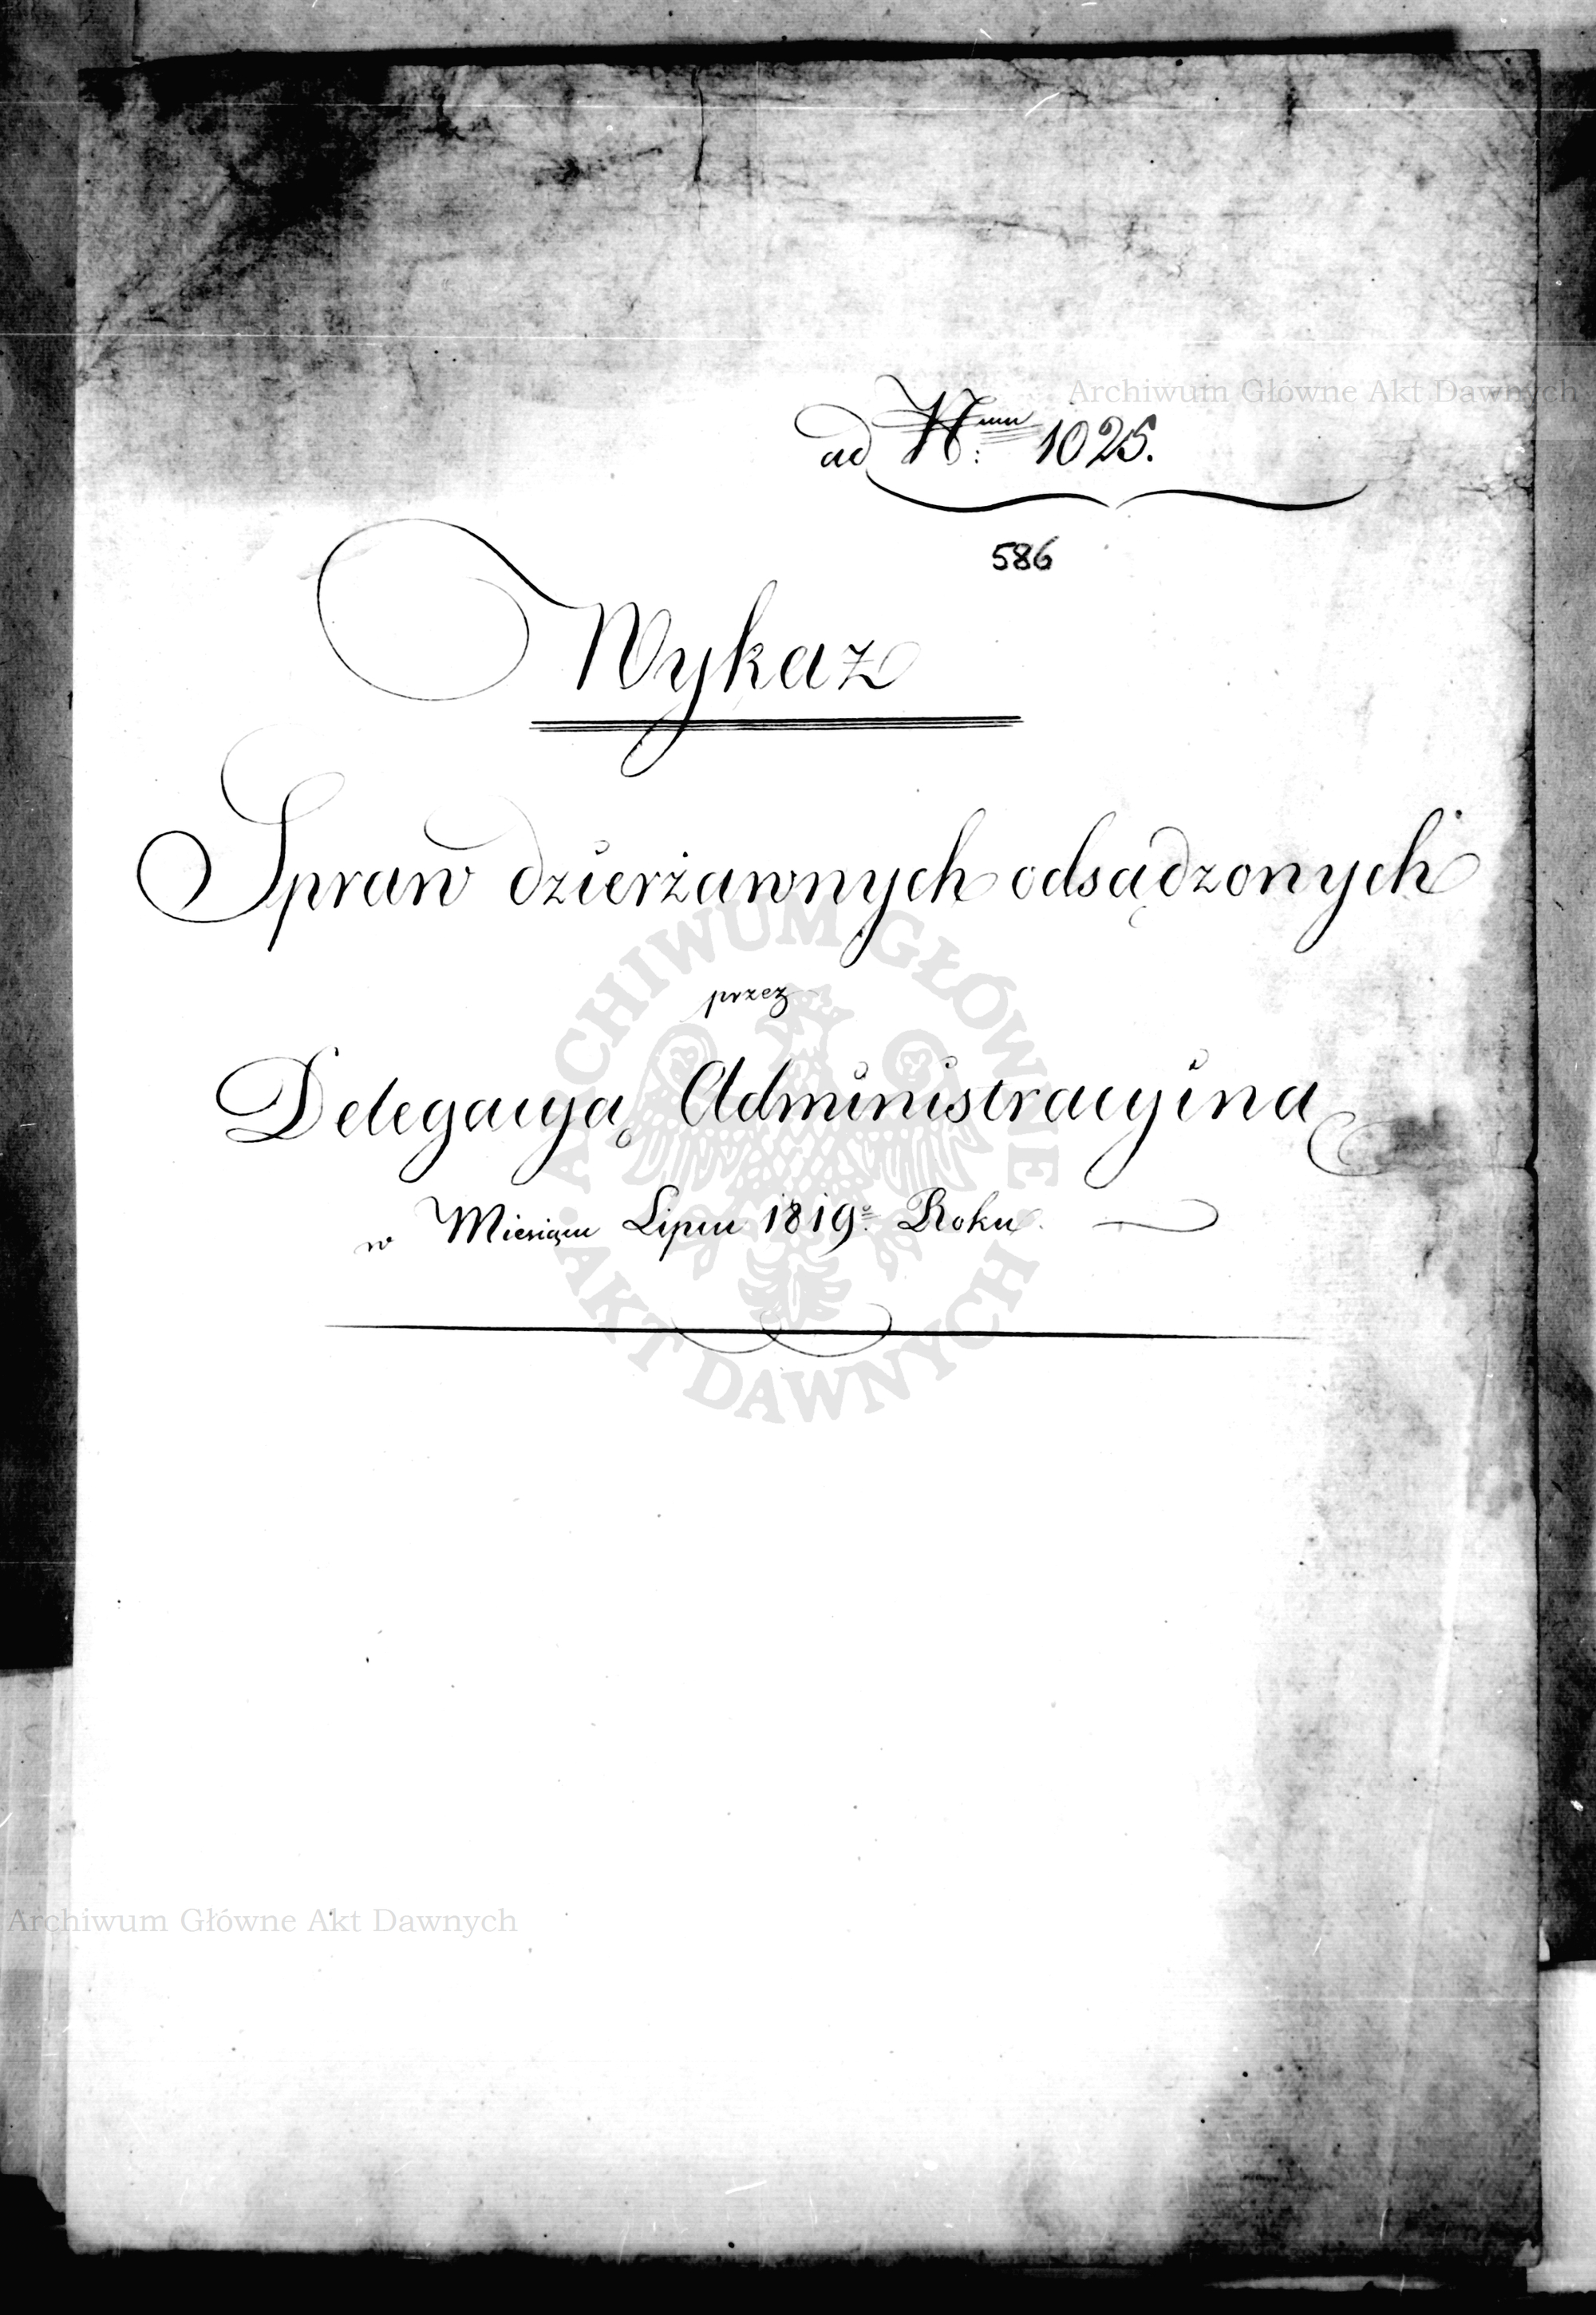 Archiwum Główne Akt Dawnych
ad Nrum 1025.
586
Wykaz
Spraw dzierżawnych odsądzonych
przez
Delegacyą Administracyiną
w Miesiącu Lipcu 1819o Roku
ARCHIWUM GŁÓWNE AKT DAWNYCH
Archiwum Główne Akt Dawnych